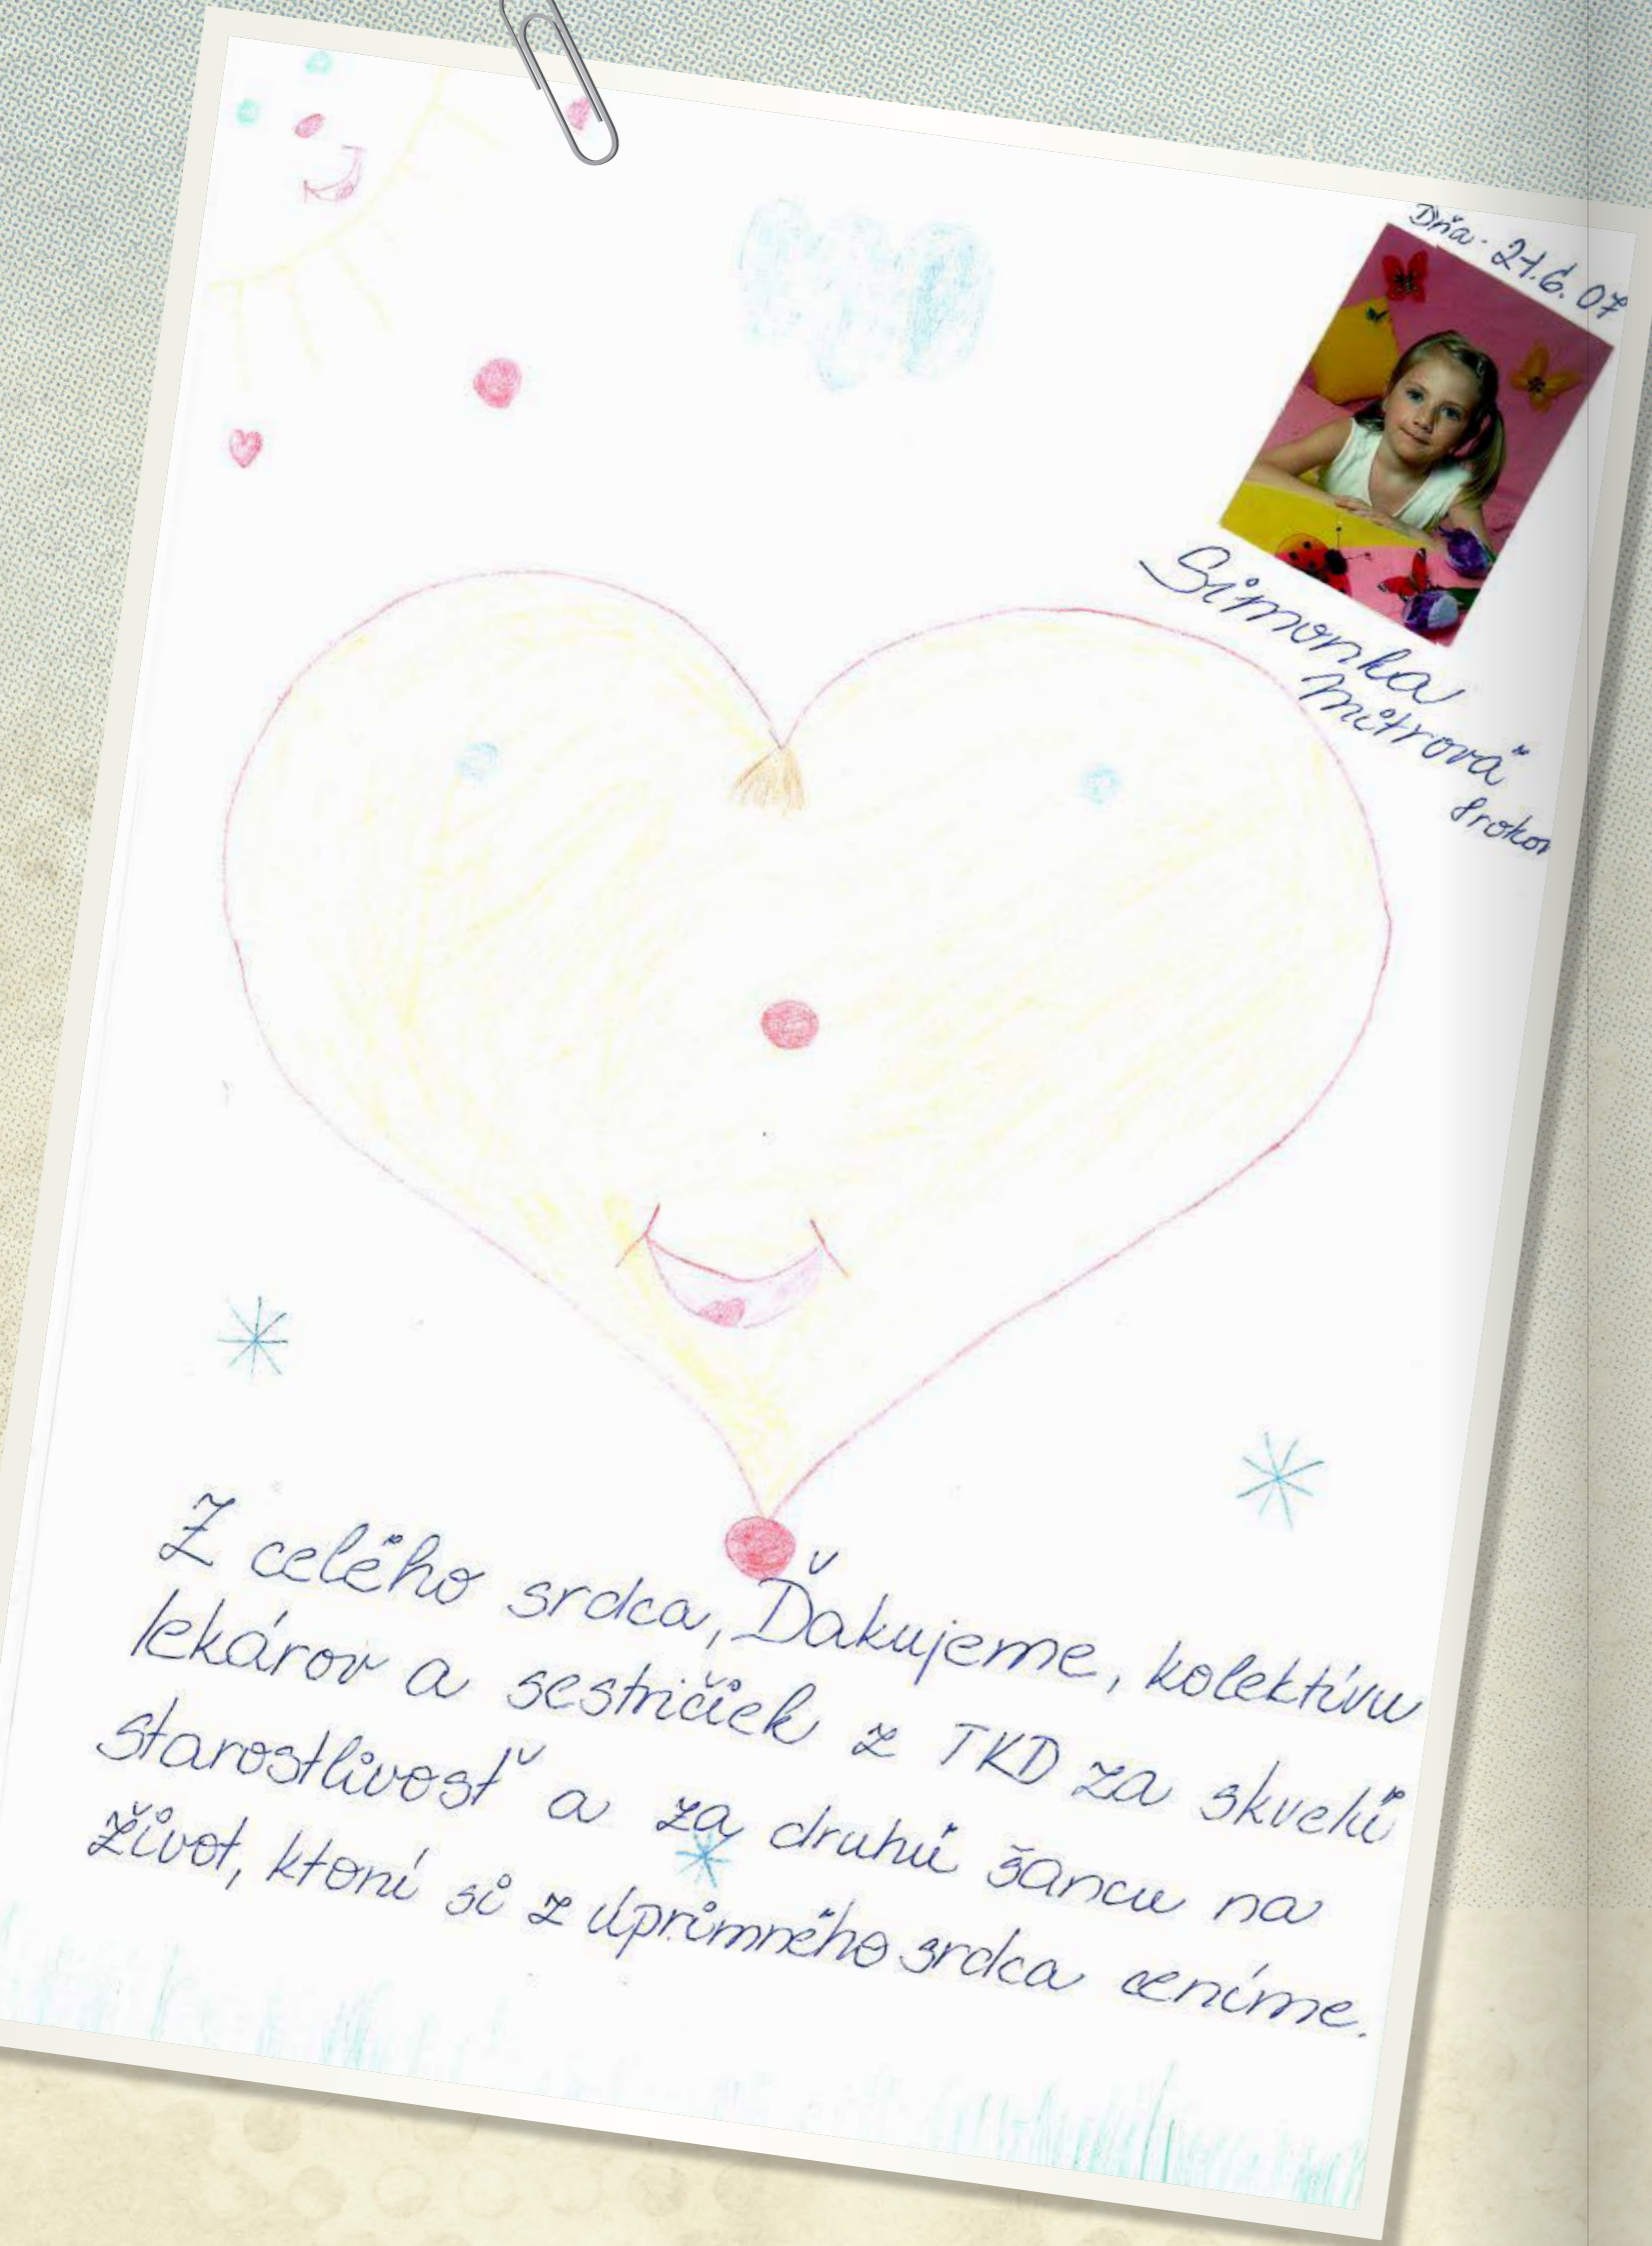 Dňa. 21.6.07
Simonka
Mitrová
8 rokov
Z celého srdca, Ďakujeme, kolektívu
lekárov a sestričiek z TKD za skvelú
starostlivosť a za druhú šancu na
život, ktorú si z úprimného srdca ceníme.